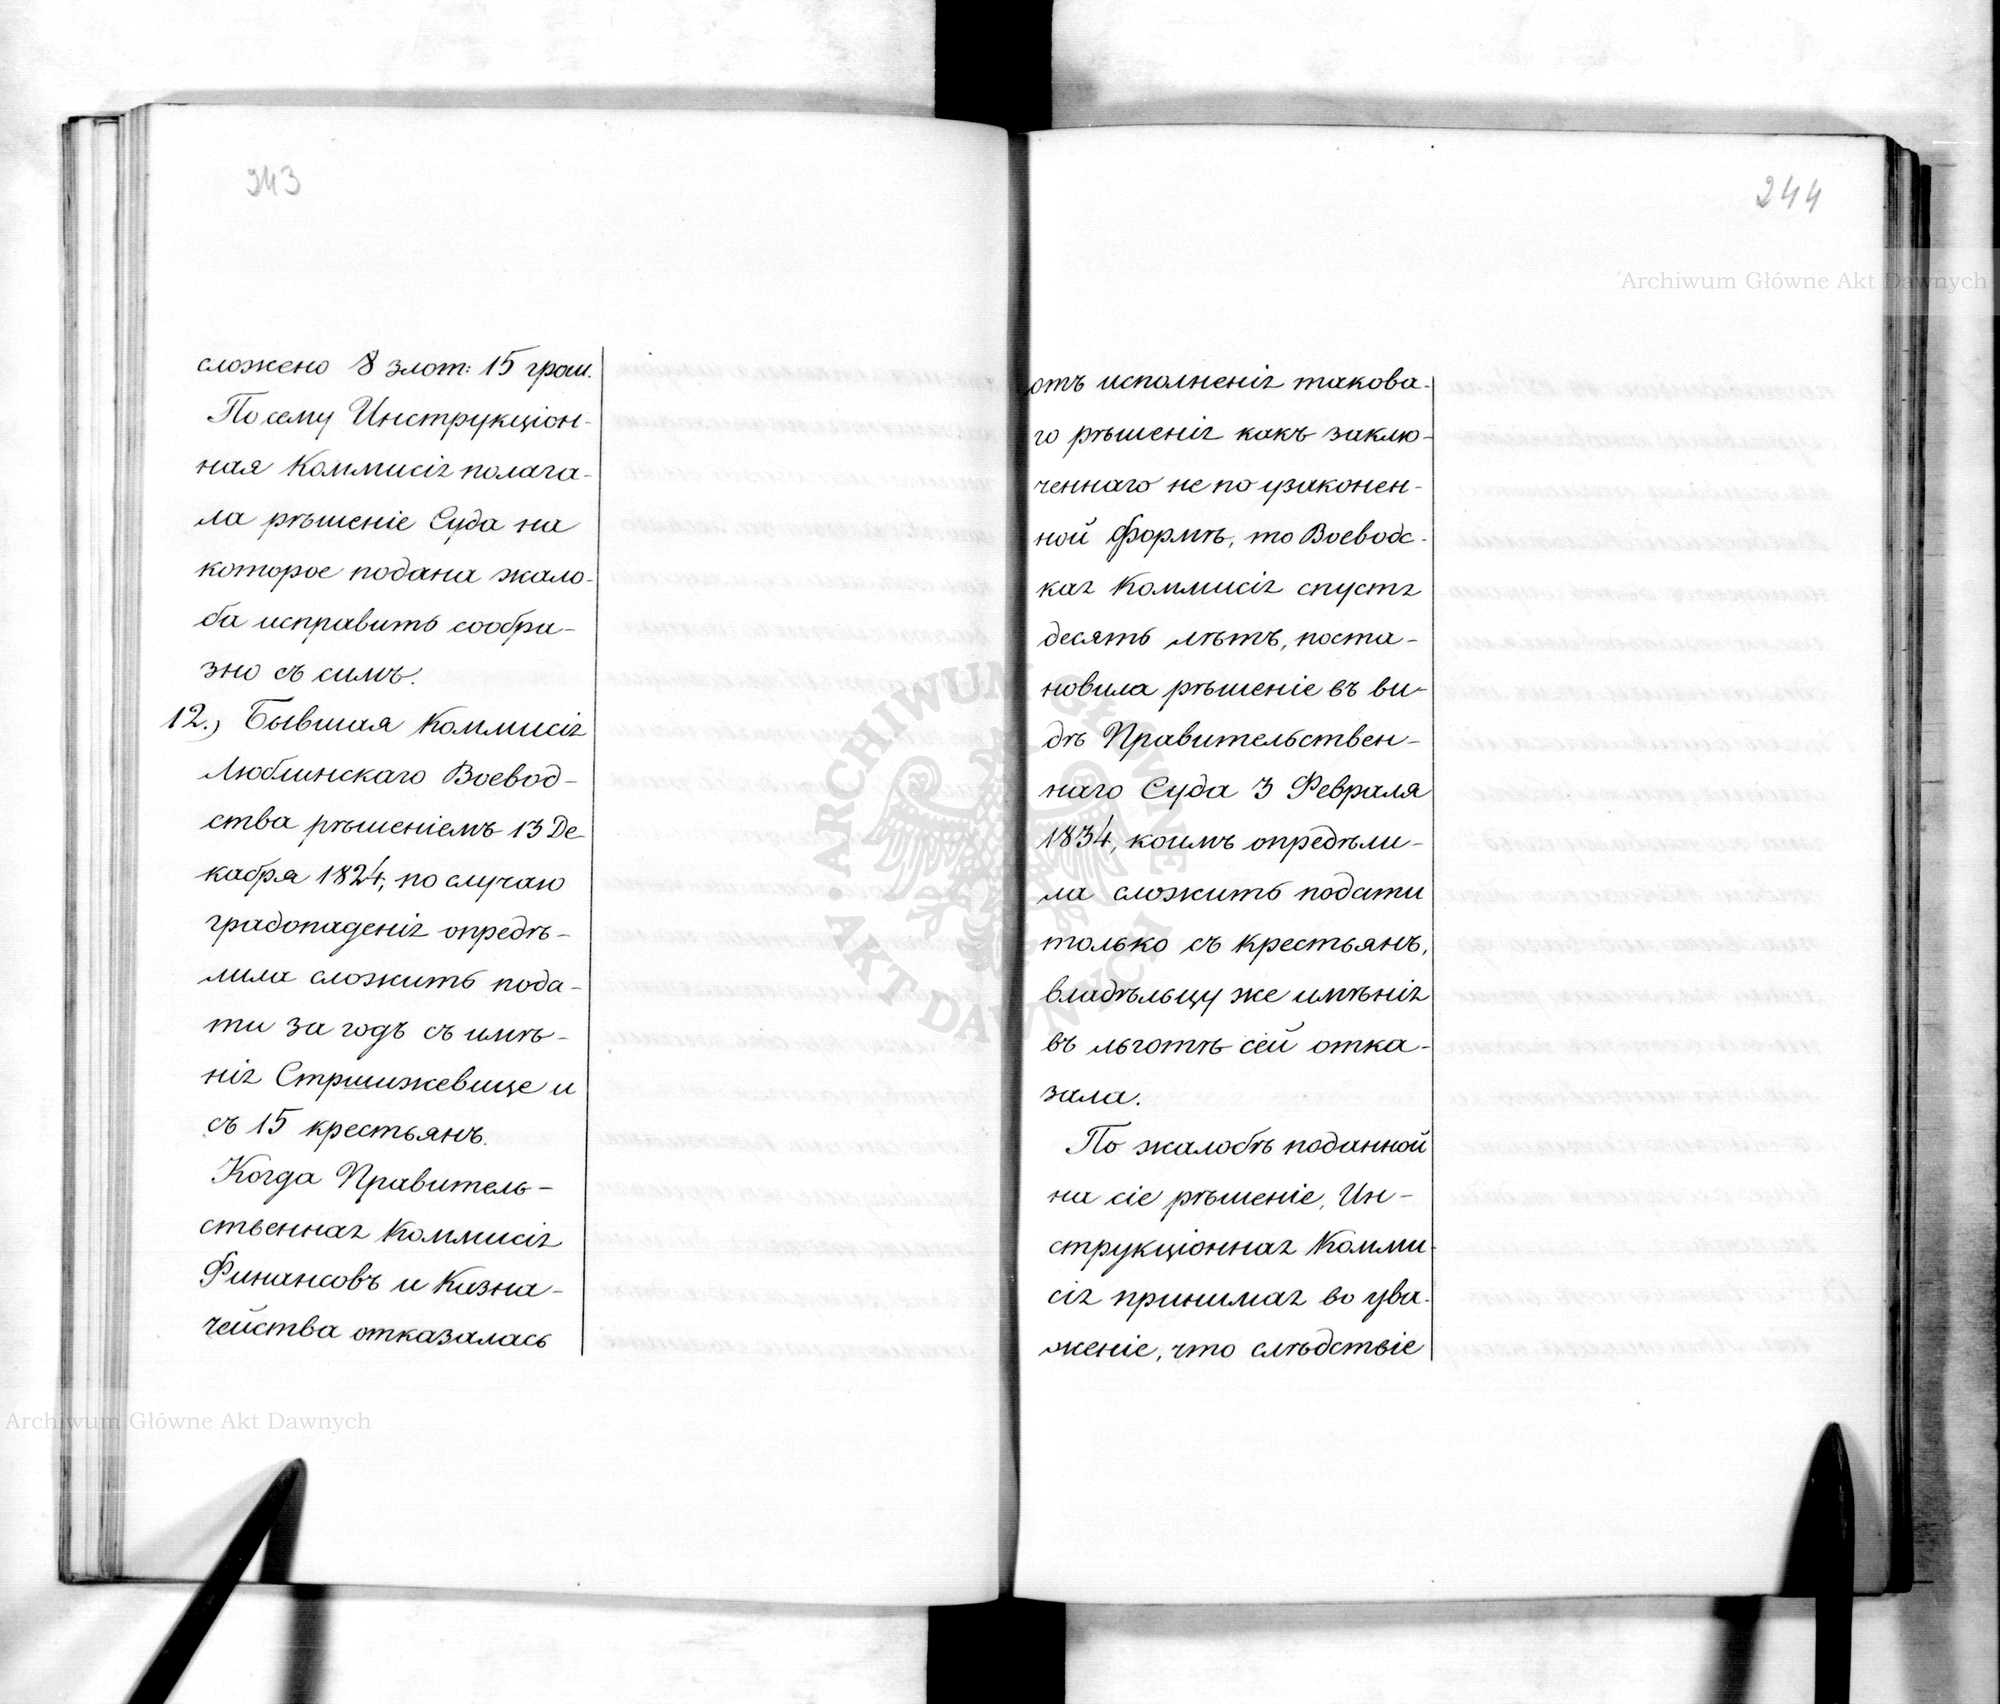 243
сложено 8 злот: 15 грош.
Посему Инструкціон-
ная Коммисія полага-
ла рѣшеніе Суда на
которое подана жало-
ба исправить сообра-
зно съ симъ.
12.) Бывшая Коммисія
Люблинскаго Воевод-
ства рѣшеніемъ 13 Де-
кабря 1824, по случаю
градопаденія опредѣ-
лила сложить пода-
ти за годъ съ имѣ-
нія Стршижевице и
съ 15 крестьянъ.
Когда Правитель-
ственная Коммисія
Финансовъ и Казна-
чейства отказалась
244
отъ исполненія такова-
го рѣшенія какъ заклю-
ченнаго не по узаконен-
ной формѣ, то Воеводс-
кая Коммисія спустя
десять лѣтъ, поста-
новила рѣшеніе въ ви-
дѣ Правительствен-
наго Суда 3 Февраля
1834, коимъ опредѣли-
ла сложить подати
только съ крестьянъ,
владѣльцу же имѣнія
въ льготѣ сей отка-
зала.
По жалобѣ поданной
на сіе рѣшеніе, Ин-
струкціонная Комми-
сія принимая во ува-
женіе, что слѣдствіе
Archiwum Główne Akt Dawnych
Archiwum Główne Akt Dawnych
ARCHIWUM GŁÓWNE
AKT DAWNYCH